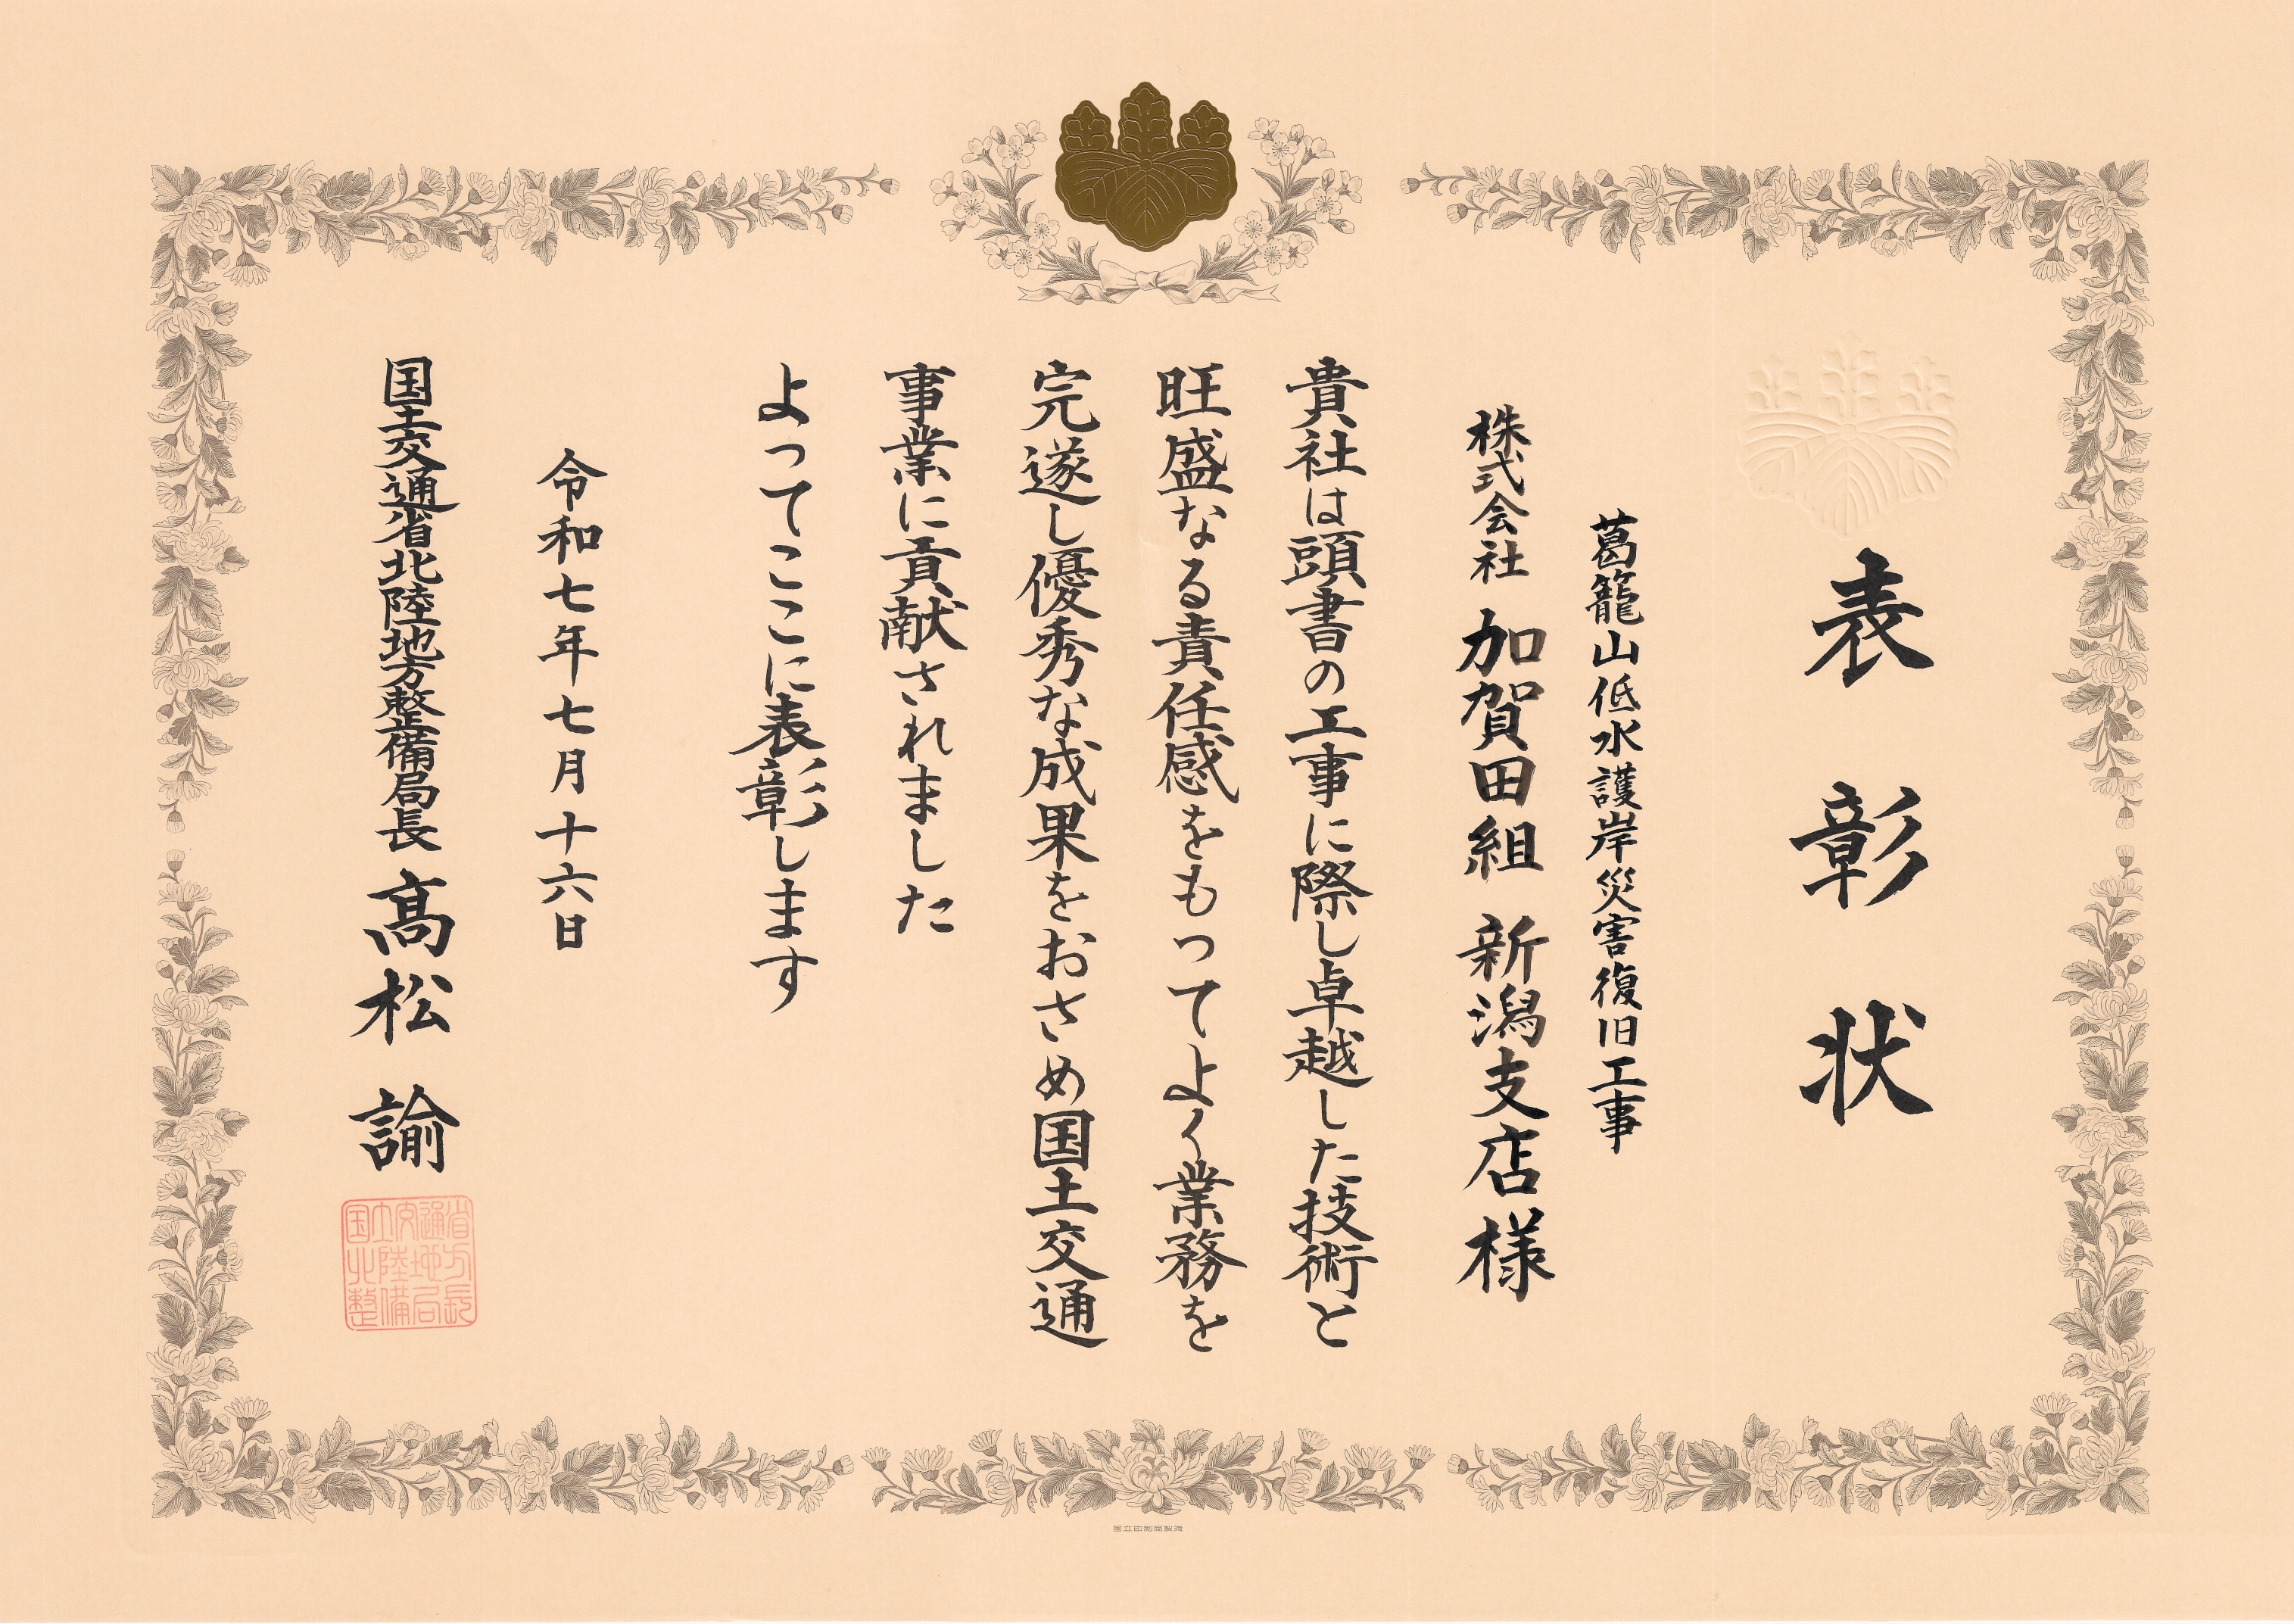 表彰状
葛籠山低水護岸災害復旧工事
株式会社 加賀田組 新潟支店様
貴社は頭書の工事に際し卓越した技術と
旺盛なる責任感をもってよく業務を
完遂し優秀な成果をおさめ国土交通
事業に貢献されました
よってここに表彰します
令和七年七月十六日
国土交通省北陸地方整備局長 髙松 諭
国立印刷局製造